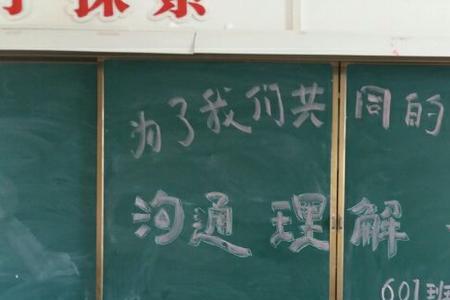 探索
为了我们共同的
沟通理解
601班